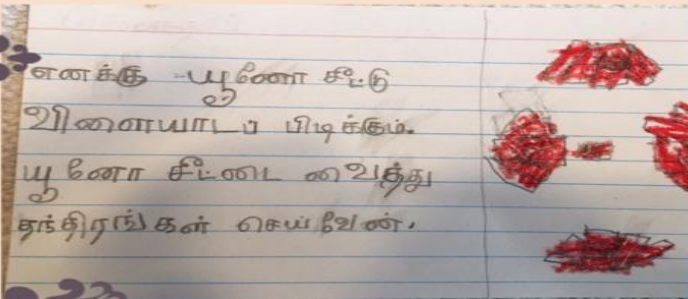 எனக்கு யூனோ சீட்டு
விளையாடப் பிடிக்கும்.
யூனோ சீட்டை வைத்து
தந்திரங்கள் செய்வேன்.